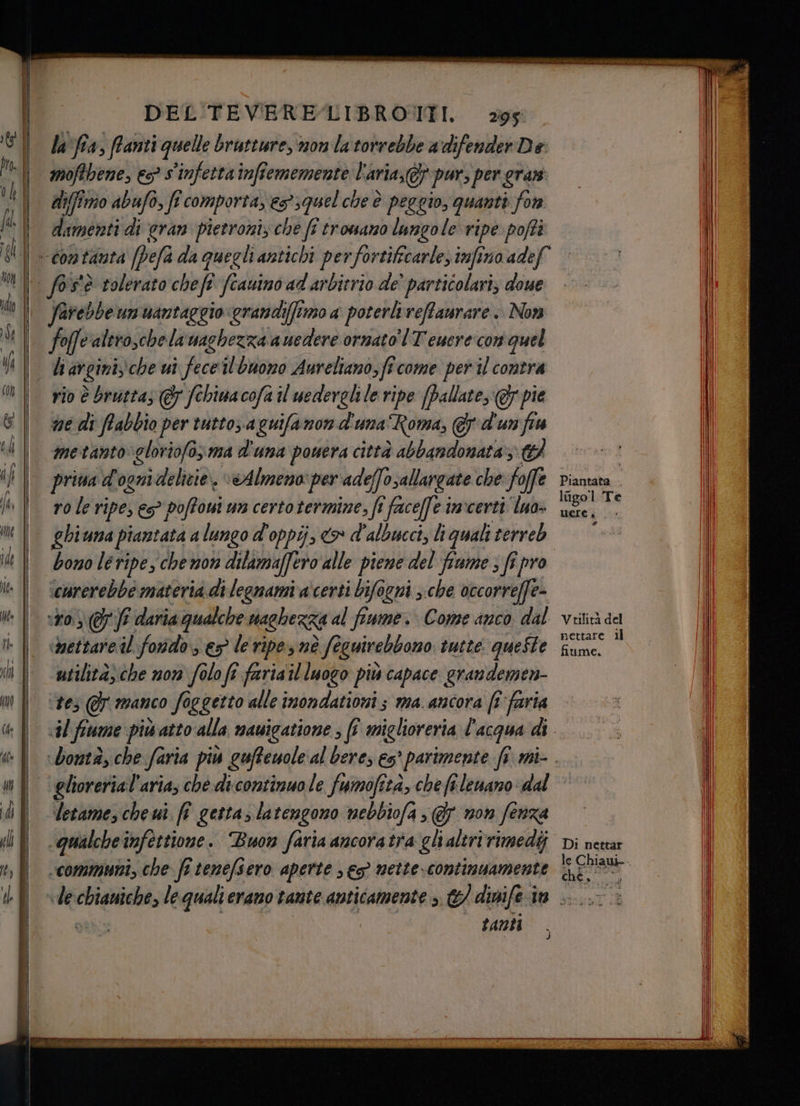 DEL TEVERE LIBRO III. 295
la sia, stanti quelle brutture, non la torrebbe a difender De
mosthene, & s'infetta insiememente l'aria, & pur, per gran
dissimo abuso, si comporta, & quel che è peggio, quanti fon
damenti di gran pietroni, che si trouano lungo le ripe posti
con tanta spesa da quegli antichi per fortificarle, infino ades
so s'è tolerato che si scauino ad arbitrio de' particolari, doue
sarebbe un uantaggio grandissimo a poterli restaurare. Non
fosse altro, che la uaghezza a uedere ornato'l Teuere con quel
li argini, che ui fece il buono Aureliano, si come per il contra
rio è brutta, & schiua cosa il uedergli le ripe spallate, & pie
ne di stabbio per tutto, a guisa non d'una Roma, & d'un fiu
me tanto glorioso, ma d'una pouera città abbandonata, &
priua d'ogni delitie. Almeno per adesso, allargate che fosse
ro le ripe, & postoui un certo termine, si facesse in certi luo-
ghi una piantata a lungo d'oppij, & d'albucci, li quali terreb
bono le ripe, che non dilamassero alle piene del fiume; si pro
curerebbe materia di legnami a certi bisogni, che occorresse-
ro, & si daria qualche uaghezza al fiume. Come anco dal
nettare il fondo, & le ripe, nè seguirebbono tutte queste
utilità, che non solo si faria il luogo più capace grandemen-
te, & manco soggetto alle inondationi; ma ancora si faria
il fiume più atto alla nauigatione, si miglioreria l'acqua di
bontà, che saria più gusteuole al bere, & parimente si mi-
glioreria l'aria, che di continuo le fumosità, che si leuano dal
letame, che ui si getta, la tengono nebbiosa, & non senza
qualche infettione. Buon saria ancora tra gli altri rimedij
communi, che si tenessero aperte, & nette continuamente
le chiauiche, le quali erano tante anticamente, & diuise in
tanti
Piantata
lūgo'l Te
uere.
Vtilità del
nettare il
fiume.
Di nettar
le Chiaui-
che.